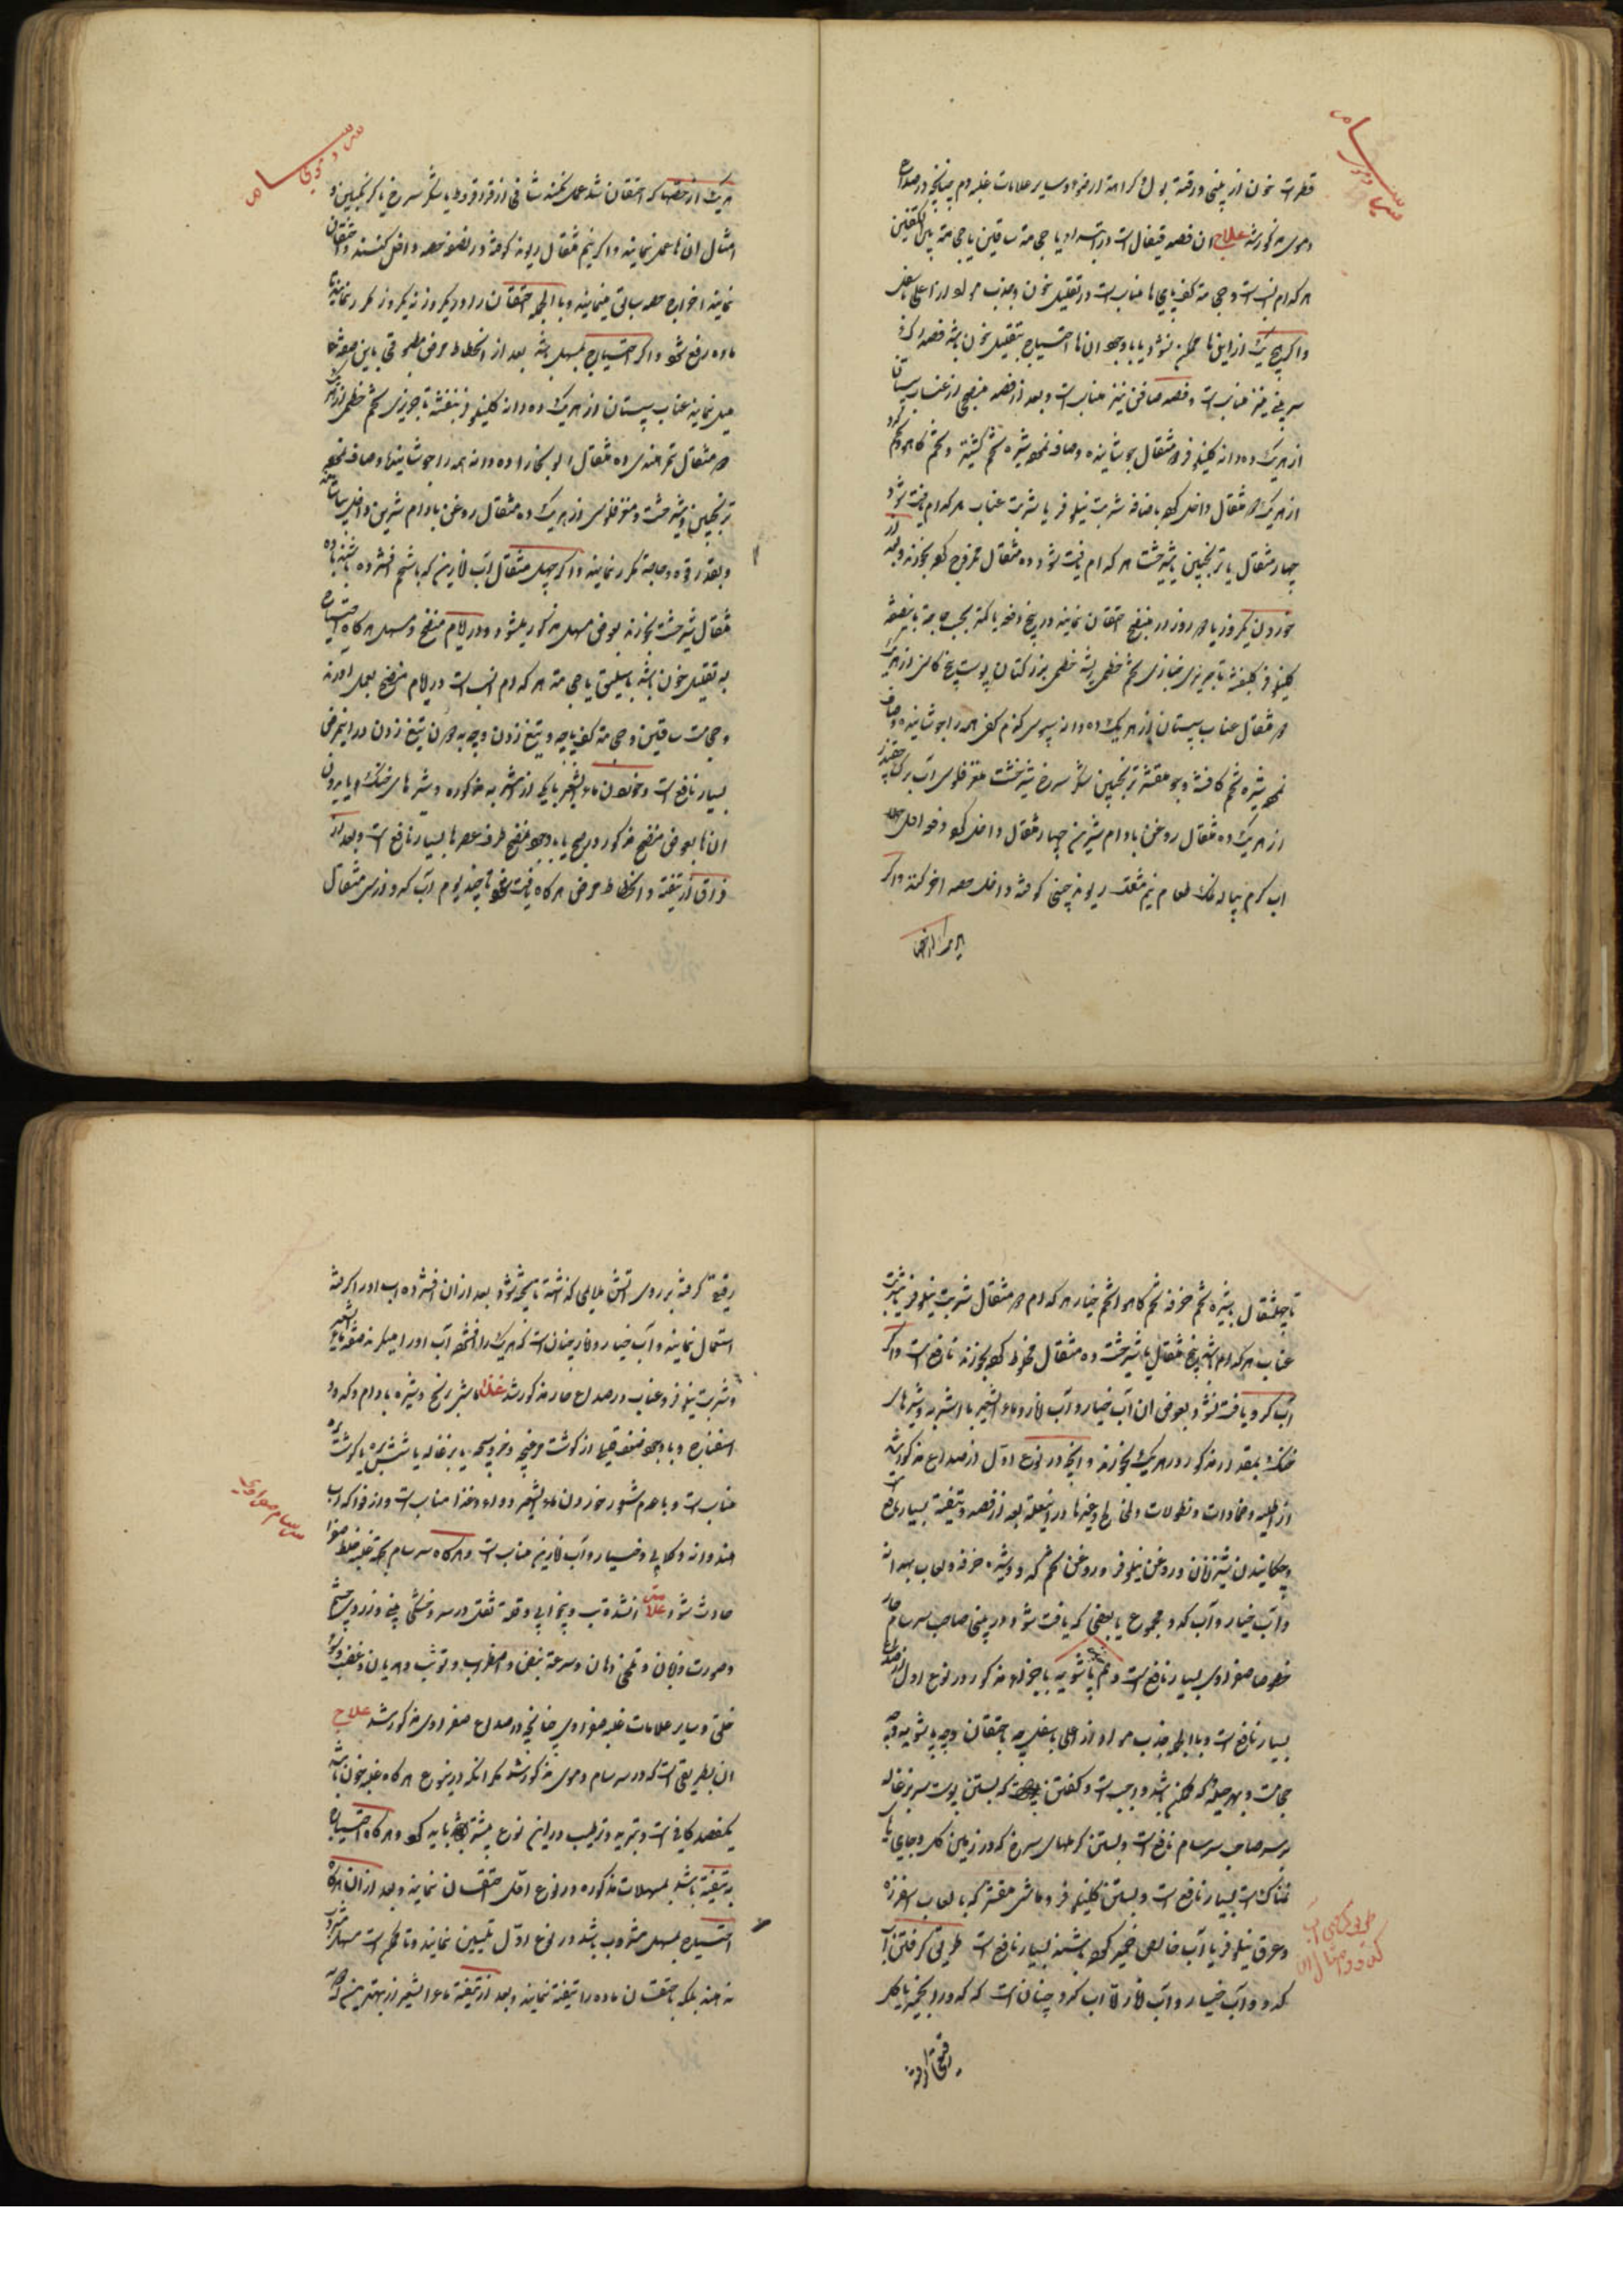 سرسام دموی
قطرات خون از بینی و رقت بول و کراهت از ضوء و سایر علامات غلبه دم چنانچه در صداع
دموی مذکور شد علاج ان فصد قیفال است در ابتدا و یا حجامت ساقین یا حجامت بین الکتفین
هر کدام انسب است و حجامت کف پای ها مناسب است در تقلیل خون و جذب مواد از اعلی باسفل
واکر هیچ یک از اینها ممکن نشود یا باوجود ان ها احتیاج بتقلیل خون باشد فصد رک
سر بینی نیز مناسب است و فصد صافن نیز مناسب است و بعد از فصد منضج از عناب سپستان
از هریک ده دانه کلنیلوفر مثقال جوشانیده و صاف نموده شیره تخم کشنیز و تخم کاهو تخم کدو
از هریک مثقال داخل کرده باضافه شربت نیلوفر یا شربت عناب هرکدام یافت شود
چهار مثقال یا ترنجبین یا شیرخشت هرکدام یافت شود ده مثقال ممزوج کرده بخورند و بعد از
خوردن یکروز یا دو روز از منضج احتقان نمایند در پنج دفعه یا کمتر بحسب حاجت بابنفشه
کلنیلوفر کلبنفشه تاجریزی خبازی تخم خطمی ریشه خطمی بزر کتان پوست بیخ کاسنی از هریک
دو مثقال عناب سپستان از هریک ده دانه سپوس کندم کفی همه را جوشانیده و صاف
نموده شیره تخم کافشه و جو مقشر ترنجبین شکر سرخ شیرخشت مغز فلوس آب برک چقندر
از هریک ده مثقال روغن بادام شیرین چهار مثقال داخل کرده دفعه اول
اب کرم پیاله نمک طعام نیم مثقال ریوند چینی کوفته داخل حصه اخر کنند واکر
سرسام دموی
هریک از حقنها که احتقان شد عمل نکند شافی از قراقروط یا شکر سرخ یا کزنجبین و
امثال ان ها عمل نمایند واکر نیم مثقال ریوند کوفته در نصف حصه داخل کنند و احتقان
نمایند اخراج حصه سابق مینماید و بالجمله احتقان را در یکروز نه یکروز مکرر نمایند تا
ماده رفع شود واکر احتیاج بمسهل باشد بعد از انحطاط مرض مطبوخی باین صفت
میل نمایند عناب سپستان از هریک ده دانه کلنیلوفر بنفشه تاجریزی تخم خطمی از هریک
دو مثقال تمر هندی ده مثقال الو بخارا ده دانه همه را جوشانیده و صاف نموده
ترنجبین و شیرخشت و مغز فلوس از هریک ده مثقال روغن بادام شیرین داخل ساخته
و بقدر قوه و حاجت مکرر نمایند واکر چهل مثقال آب انارین که باشحم افشرده باشند با ده
مثقال شیرخشت بخورند بعوض مسهل مذکور میشود و در ایام منضج و مسهل هرکاه احتیاج
به تقلیل خون باشد باسلیق یا حجامت هرکدام انسب است در ایام منضج بعمل اورند
و حجامت ساقین و حجامت کف پا چه و تیغ زدن و چه بدون تیغ زدن در اینمرض
بسیار نافع است و خوردن ماءالشعیر بایکی از اشربه مذکوره و شیرهای خنک و یا بدون
ان ها بعوض منضج مذکور در صبح یا باوجود منضج طرف عصرها بسیار نافع است و بعد از
فراق از تنقیه و انحطاط مرض هرکاه یافت شود تا چند یوم آب کدو از سی مثقال
تا چهلمثقال بشیره تخم خرفه تخم کاهو یا تخم خیار هرکدام دو مثقال شربت نیلوفر یا شربت
عناب هرکدام پنج مثقال یا شیرخشت ده مثقال مخلوط کرده بخورند نافع است واکر
آب کدو یافت نشود بعوض ان آب خیار و آب انار و ماءالشعیر با اشربه و شیرهای
خنک بمقدار مذکور از هریک بخورند و انچه در نوع اول از صداع مذکور شد
از اطلیه و ضمادات و نطولات و لخالخ وغیرها در اینعلت بعد از فصد و تنقیه بسیار نافع
و چکانیدن شیر زنان و روغن نیلوفر و روغن تخم کدو و شیره خرفه و لعاب بهدانه
و آب خیار و آب کدو مجموع یا بعضی که یافت شود در بینی صاحب سرسام حار
خصوصا صفراوی بسیار نافع است و هم پاشویه باجزاء مذکور در نوع اول از صداع
بسیار نافع است و بالجمله جذب مواد از اعلی باسفل چه باحتقان و چه پاشویه و چه
حجامت و بهر حیله که ممکن باشد واجب است و کفتند که بستن پوست سر بزغاله
بر سر صاحب سرسام نافع است و بستن کرمهای سرخ که در زمین کل و جاهای
نمناک است بسیار نافع است و بستن کلنیلوفر و ماش مقشر که بالعاب اسفرزه
و عرق نیلوفر یا آب خالص خمیر کرده باشند بسیار نافع است طریق کرفتن آب
کدو و آب خیار و آب انار اما آب کدو چنان است که کدو را بخمیر یا کل
طریق کرفتن آب
کدو و امثال ان
رقیق کرفته بر روی تشی ملایمی کذاشته تا پخته شود بعد از ان افشرده اب اورا کرفته
استعمال نمایند و آب خیار و انار چنان است که هریک را افشرده آب اورا میکیرند ماءالشعیر
و شربت نیلوفر و عناب در صداع حار مذکور شد غذا ماش برنج و شیره بادام و کدو و
اسفناج و باوجود ضعف قیمه از کوشت مرغچه و خروسچه یا بزغاله یا شیشک یا کوشت بره
مناسب است و باعدم شعور خوردن ماءالشعیر دواء و غذا مناسب است و از فواکه آب
هندوانه و کلابی و خیار و آب انارین مناسب است و هرکاه سرسام بجهت غلبه خلط صفرا
حادث شود علامتش انشدت تب و بیخوابی و قلت ثقل در سر و خشکی بینی و زردی چشم
و صورت و زبان و تلخی دهان و سرعت نبض و اضطراب و توثب و هذیان و غضب و سوء
خلق و سایر علامات غلبه صفراوی چنانچه در صداع صفراوی مذکور شد علاج
ان بطریقی است که در سرسام دموی مذکور شد مکر انکه در اینوع هرکاه غلبه خون باشد
یکفصد کافی است و تبرید و ترطیب در این نوع بیشتر باید کرد و هرکاه احتیاج
به تنقیه باشد بمسهلات مذکوره در نوع اول احتقان نمایند و بعد از ان هرکاه
احتیاج بمسهل مشروب باشد در نوع اول تلیین نمایند و تا ممکن است مسهل مشروب
ندهند بلکه باحتقان ماده را تنقیه نمایند و بعد از تنقیه ماءالشعیر از بهترین
سرسام صفراوی